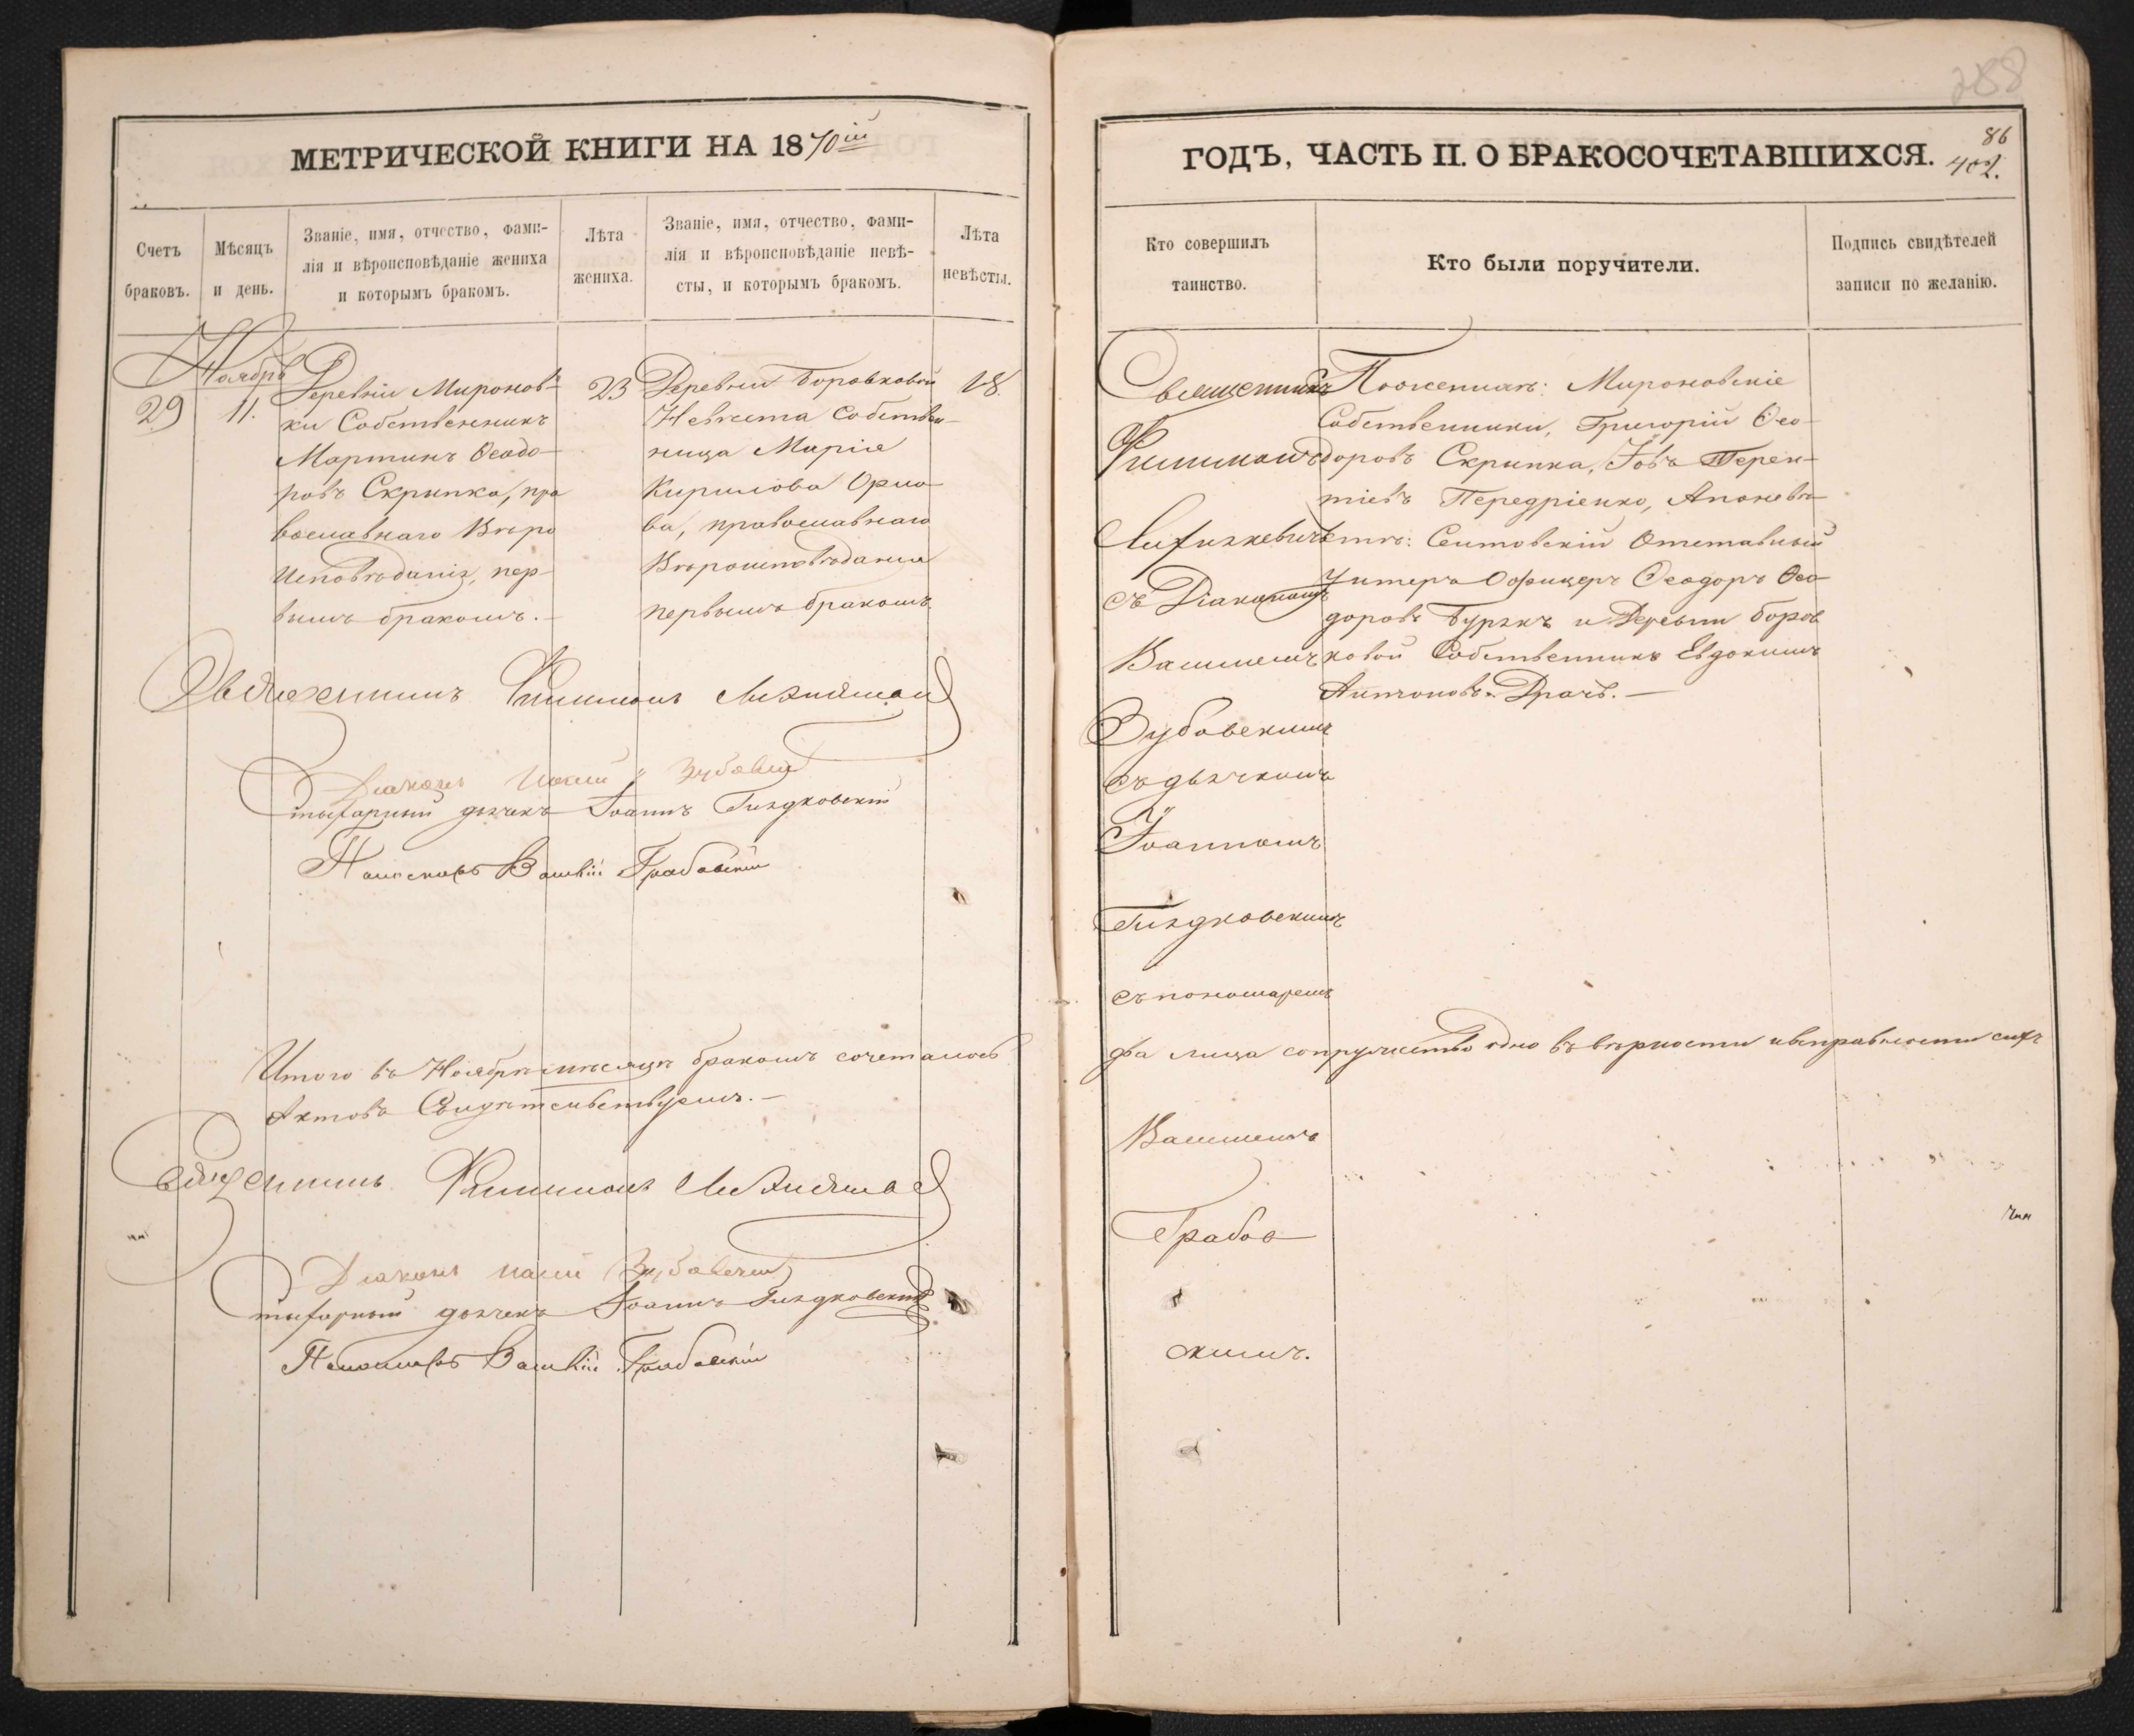 288
МЕТРИЧЕСКОЙ КНИГИ НА 1870ій
Счетъ
браковъ.
Мѣсяцъ
и день.
Званіе, имя, отчество, фами-
лія и вѣроисповѣданіе жениха
и которымъ бракомъ.
Лѣта
жениха.
Званіе, имя, отчество, фами-
лія и вѣроисповѣданіе невѣ-
сты, и которымъ бракомъ.
Лѣта
невѣсты.
Ноябрь
29
11.
Деревни Миронов-
ки Собственникъ
Мартинъ Ѳеодо-
ровъ Скрипка, пра
вославнаго Вѣро
Исповѣданія, пер-
вымъ бракомъ.-
23
Деревни Боровковой
Невѣста Собствен-
ница Марія
Кирилова Орло-
ва, православнаго
Вѣроисповѣданія
первымъ бракомъ
18.
Священникъ Филимонъ
Діаконъ Зубовскій
дьячекъ Іоаннъ Гиздковскій
Пономарь Грабовскій
Итого въ Ноябрѣ мѣсяцѣ бракомъ сочеталось
Актовъ Свидѣтельствуемъ.-
Священникъ Филимонъ
Діаконъ Зубовскій
дьячекъ Іоаннъ Гиздковскій
Пономарь Грабовскій
86
402.
ГОДЪ, ЧАСТЬ II. О БРАКОСОЧЕТАВШИХСЯ.
Кто совершилъ
таинство.
Кто были поручители.
Подпись свидѣтелей
записи по желанію.
Священникъ
Филимонъ
съ Діакономъ
Зубовскимъ
съ дьячкомъ
Іоанномъ
Гиздковскимъ
съ пономаремъ
По женихѣ: Мироновскіе
Собственники, Григорій Ѳео-
доровъ Скрипка, Іовъ Терен-
тіевъ Передріенко, А по невѣ-
стѣ: Отставный
Унтеръ Офицеръ Ѳеодоръ Ѳео-
доровъ и Деревни Боров
ковой Собственникъ Евдокимъ
Антоновъ Драчъ.-
два лица супружество одно въ вѣрности и исправности сихъ
Грабов
скимъ.